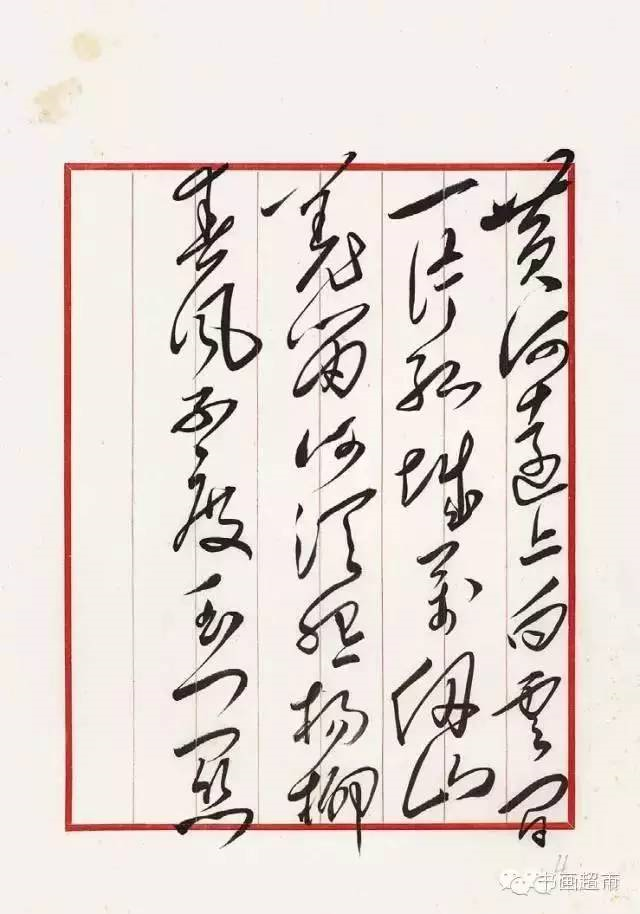 黄河远上白云间
一片孤城万仞山
羌笛何须怨杨柳
春风不度玉门关
书画超市